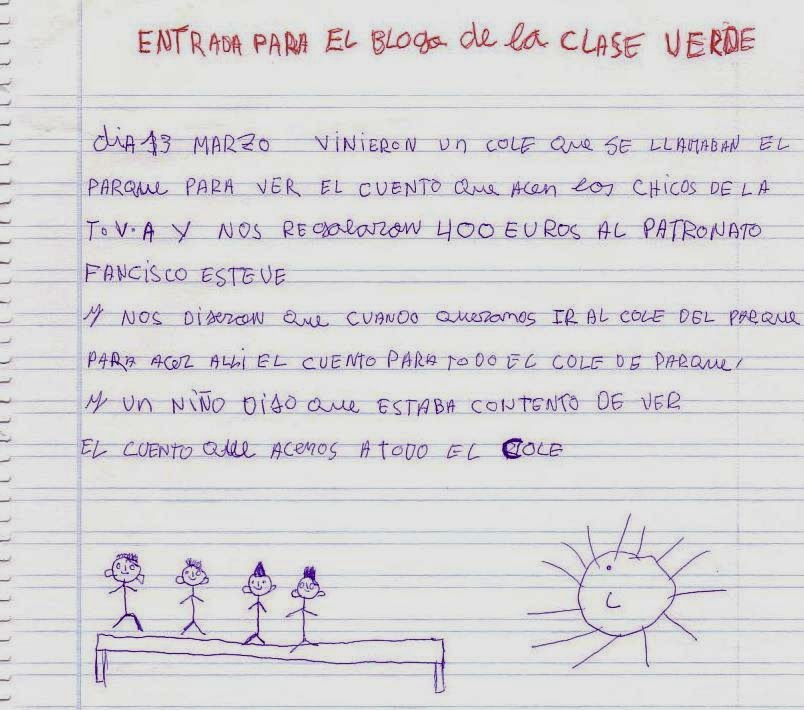 ENTRADA PARA EL BLOGA de la CLASE VERDE
dia 13 MARZO VINIERON Un COLE QUE SE LLAMABAN EL
PARQUE PARA VER EL CUENTO QUE ACEn LOS CHICOS DE LA
T.V.A Y NOS REGALARON 400 EUROS AL PATRONATO
FANCISCO ESTEVE
Y NOS DIJERON QUE CUANDO QUERAMOS IR AL COLE DEL PARQUE
PARA ACER ALLI EL CUENTO PARA TODO EL COLE DE PARQUE,
Y UN NIÑO DIJO QUE ESTABA CONTENTO DE VER
EL CUENTO QUE ACEMOS A TODO EL COLE